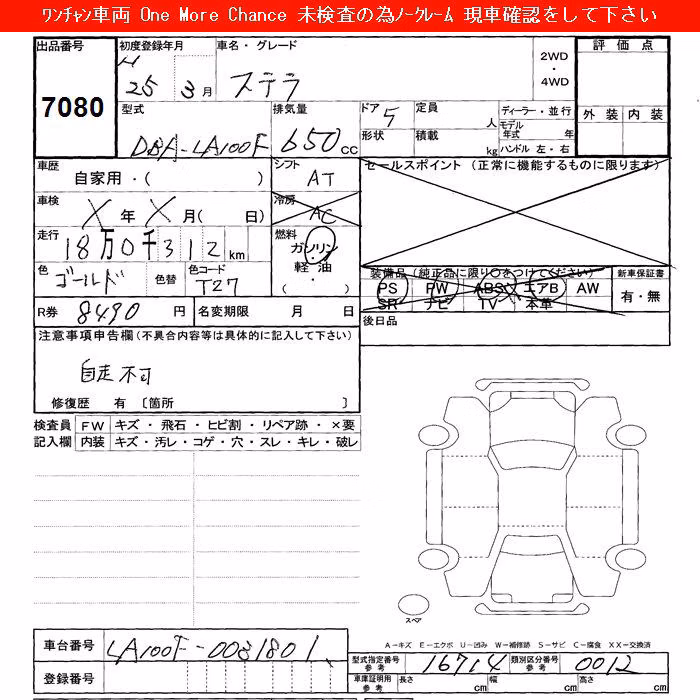 ﾜﾝﾁｬﾝ車両 One More Chance 未検査の為ﾉｰｸﾚｰﾑ 現車確認をして下さい
出品番号 初度登録年月 車名・グレード 2WD・4WD 評価点
7080 H 25 3月 ステラ
外装 内装
型式 排気量 ドア 5 定員 人 ディーラー・並行
DBA-LA100F 650cc 形状 積載 kg モデル年式 年
ハンドル 左・右
車歴 自家用・( ) シフト AT セールスポイント (正常に機能するものに限ります)
車検 X年X月( 日) 冷房 AC
走行 18万0千312km 燃料 ガソリン・軽油・( )
色 ゴールド 色替 色コード T27
装備品 (純正品に限り○をつけてください) 新車保証書
PS PW ABS エアB AW 有・無
SR ナビ TV 本革
R券 8490円 名変期限 月 日 後日品
注意事項申告欄(不具合内容等は具体的に記入して下さい)
自走不可
修復歴 有 〔箇所 〕
検査員 FW キズ・飛石・ヒビ割・リペア跡・×要
記入欄 内装 キズ・汚レ・コゲ・穴・スレ・キレ・破レ
スペア
A-キズ E-エクボ U-凹み W-補修跡 S-サビ C-腐食 XX-交換済
車台番号 LA100F-0031801
型式指定番号 参考 16714 類別区分番号 参考 0012
登録番号
車庫証明用 参考 長さ cm 幅 cm 高さ cm